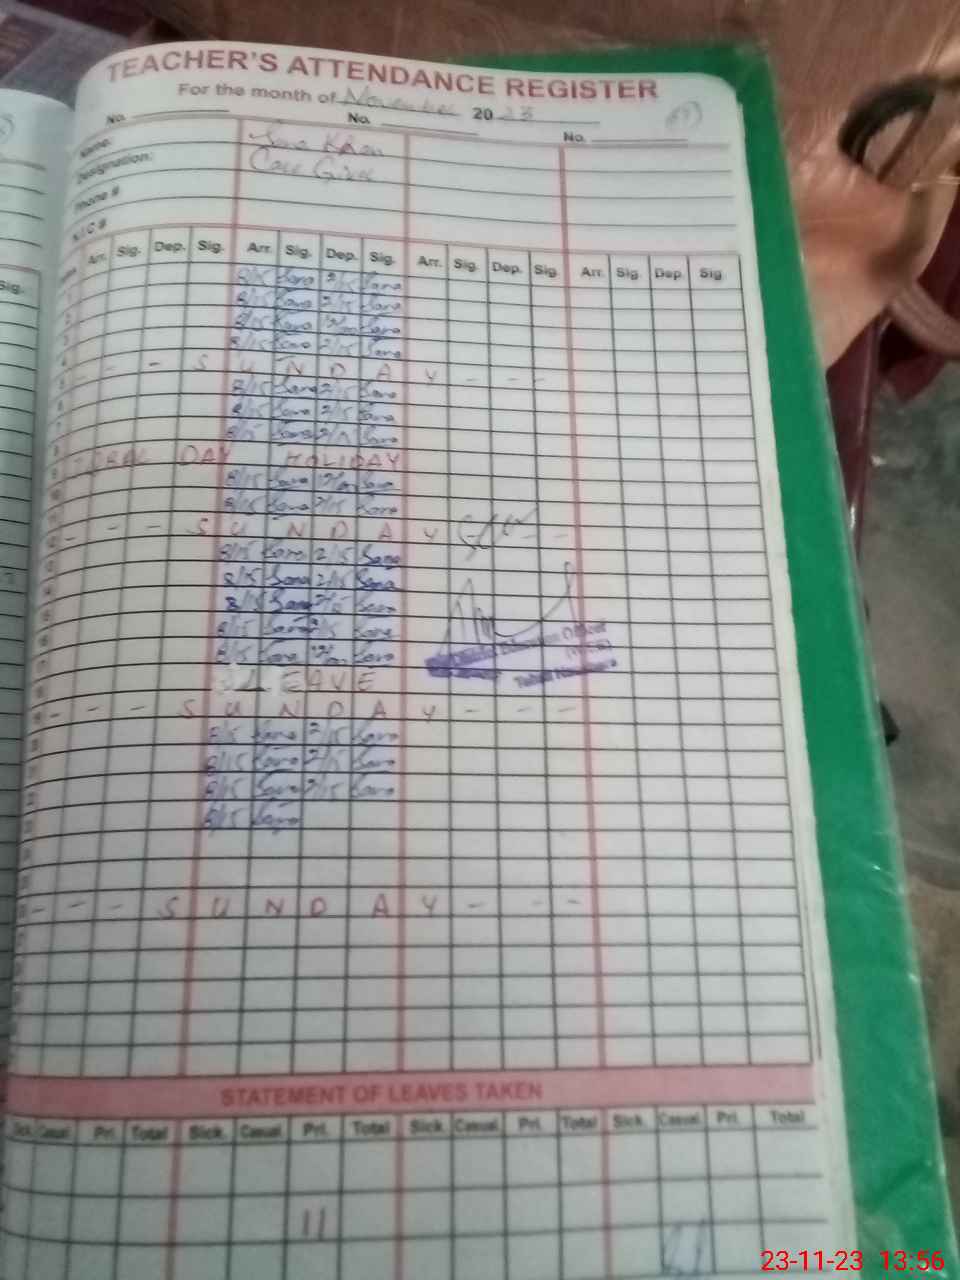 TEACHER'S ATTENDANCE REGISTER
For the month of November 20 23
No. No. No.
Name: Khan
Designation: Care
Phone #
N.I.C #
Arr. Sig. Dep. Sig. Arr. Sig. Dep. Sig. Arr. Sig. Dep. Sig. Arr. Sig. Dep. Sig
8/15 Sana 2/15 Sana
8/15 Sana 2/15 Sana
8/15 Sana 12/00 Sana
8/15 Sana 2/15 Sana
- - - S U N D A Y - - -
8/15 Sana 2/15 Sana
8/15 Sana 2/15 Sana
8/15 Sana Sana
IQBAL DAY HOLIDAY
8/15 Sana 12/00 Sana
8/15 Sana 2/15 Sana
- - - S U N D A Y - - -
8/15 Sana 2/15 Sana
8/15 Sana 2/15 Sana
8/15 Sana 2/15 Sana
8/15 Sana 2/15 Sana
8/15 Sana 12/00 Sana
Education Officer
LEAVE
- - - S U N D A Y - - -
8/15 Sana 2/15 Sana
8/15 Sana 2/15 Sana
8/15 Sana 2/15 Sana
8/15 Sana
- - - S U N D A Y - - -
STATEMENT OF LEAVES TAKEN
Sick Casual Pri. Total Sick. Casual Pri. Total Sick. Casual Pri. Total Sick. Casual Pri. Total
11
23-11-23 13:56